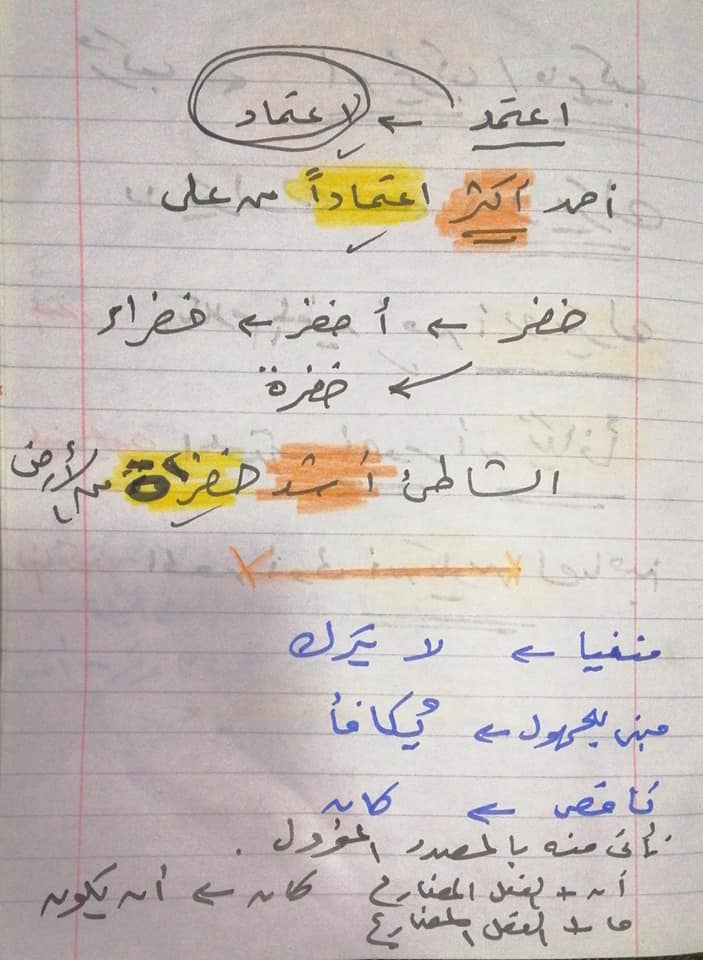 اعتمد ← لاعتماد
أحمد أكثر اعتماداً من على
خضر ← أخضر ← خضراء
← خضرة
الشاطئ أشد خضرة من الأرض
منفيا ← لا يترك
مبنى للمجهول ← يُكافأ
ناقص ← كان
نأتى منه بالمصدر المؤول .
أن + الفعل المضارع كان ← أن يكون
ما + الفعل المضارع